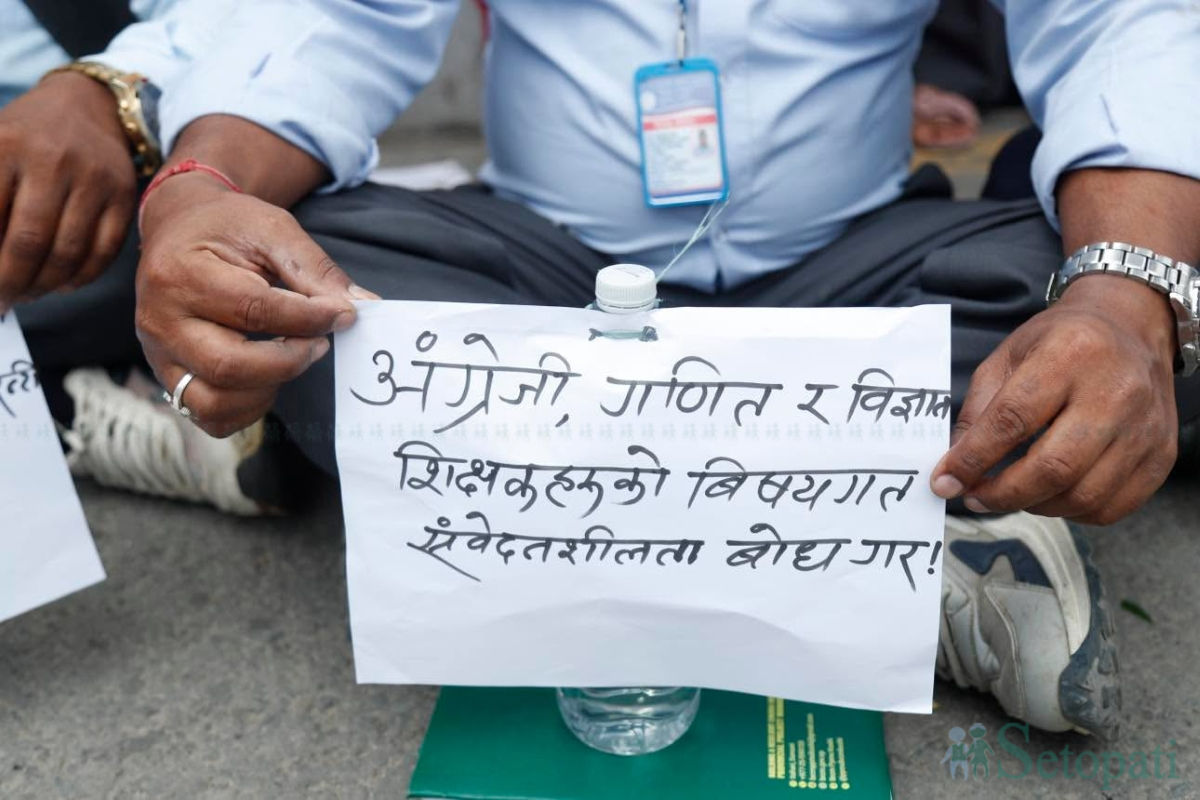 अंग्रेजी, गणित र विज्ञान
शिक्षकहरुको बिषयगत
संवेदतशीलता बोध गर!
Setopati